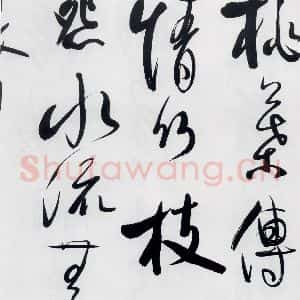 桃葉傳
情竹枝
怨水流無
Shufawang.CN